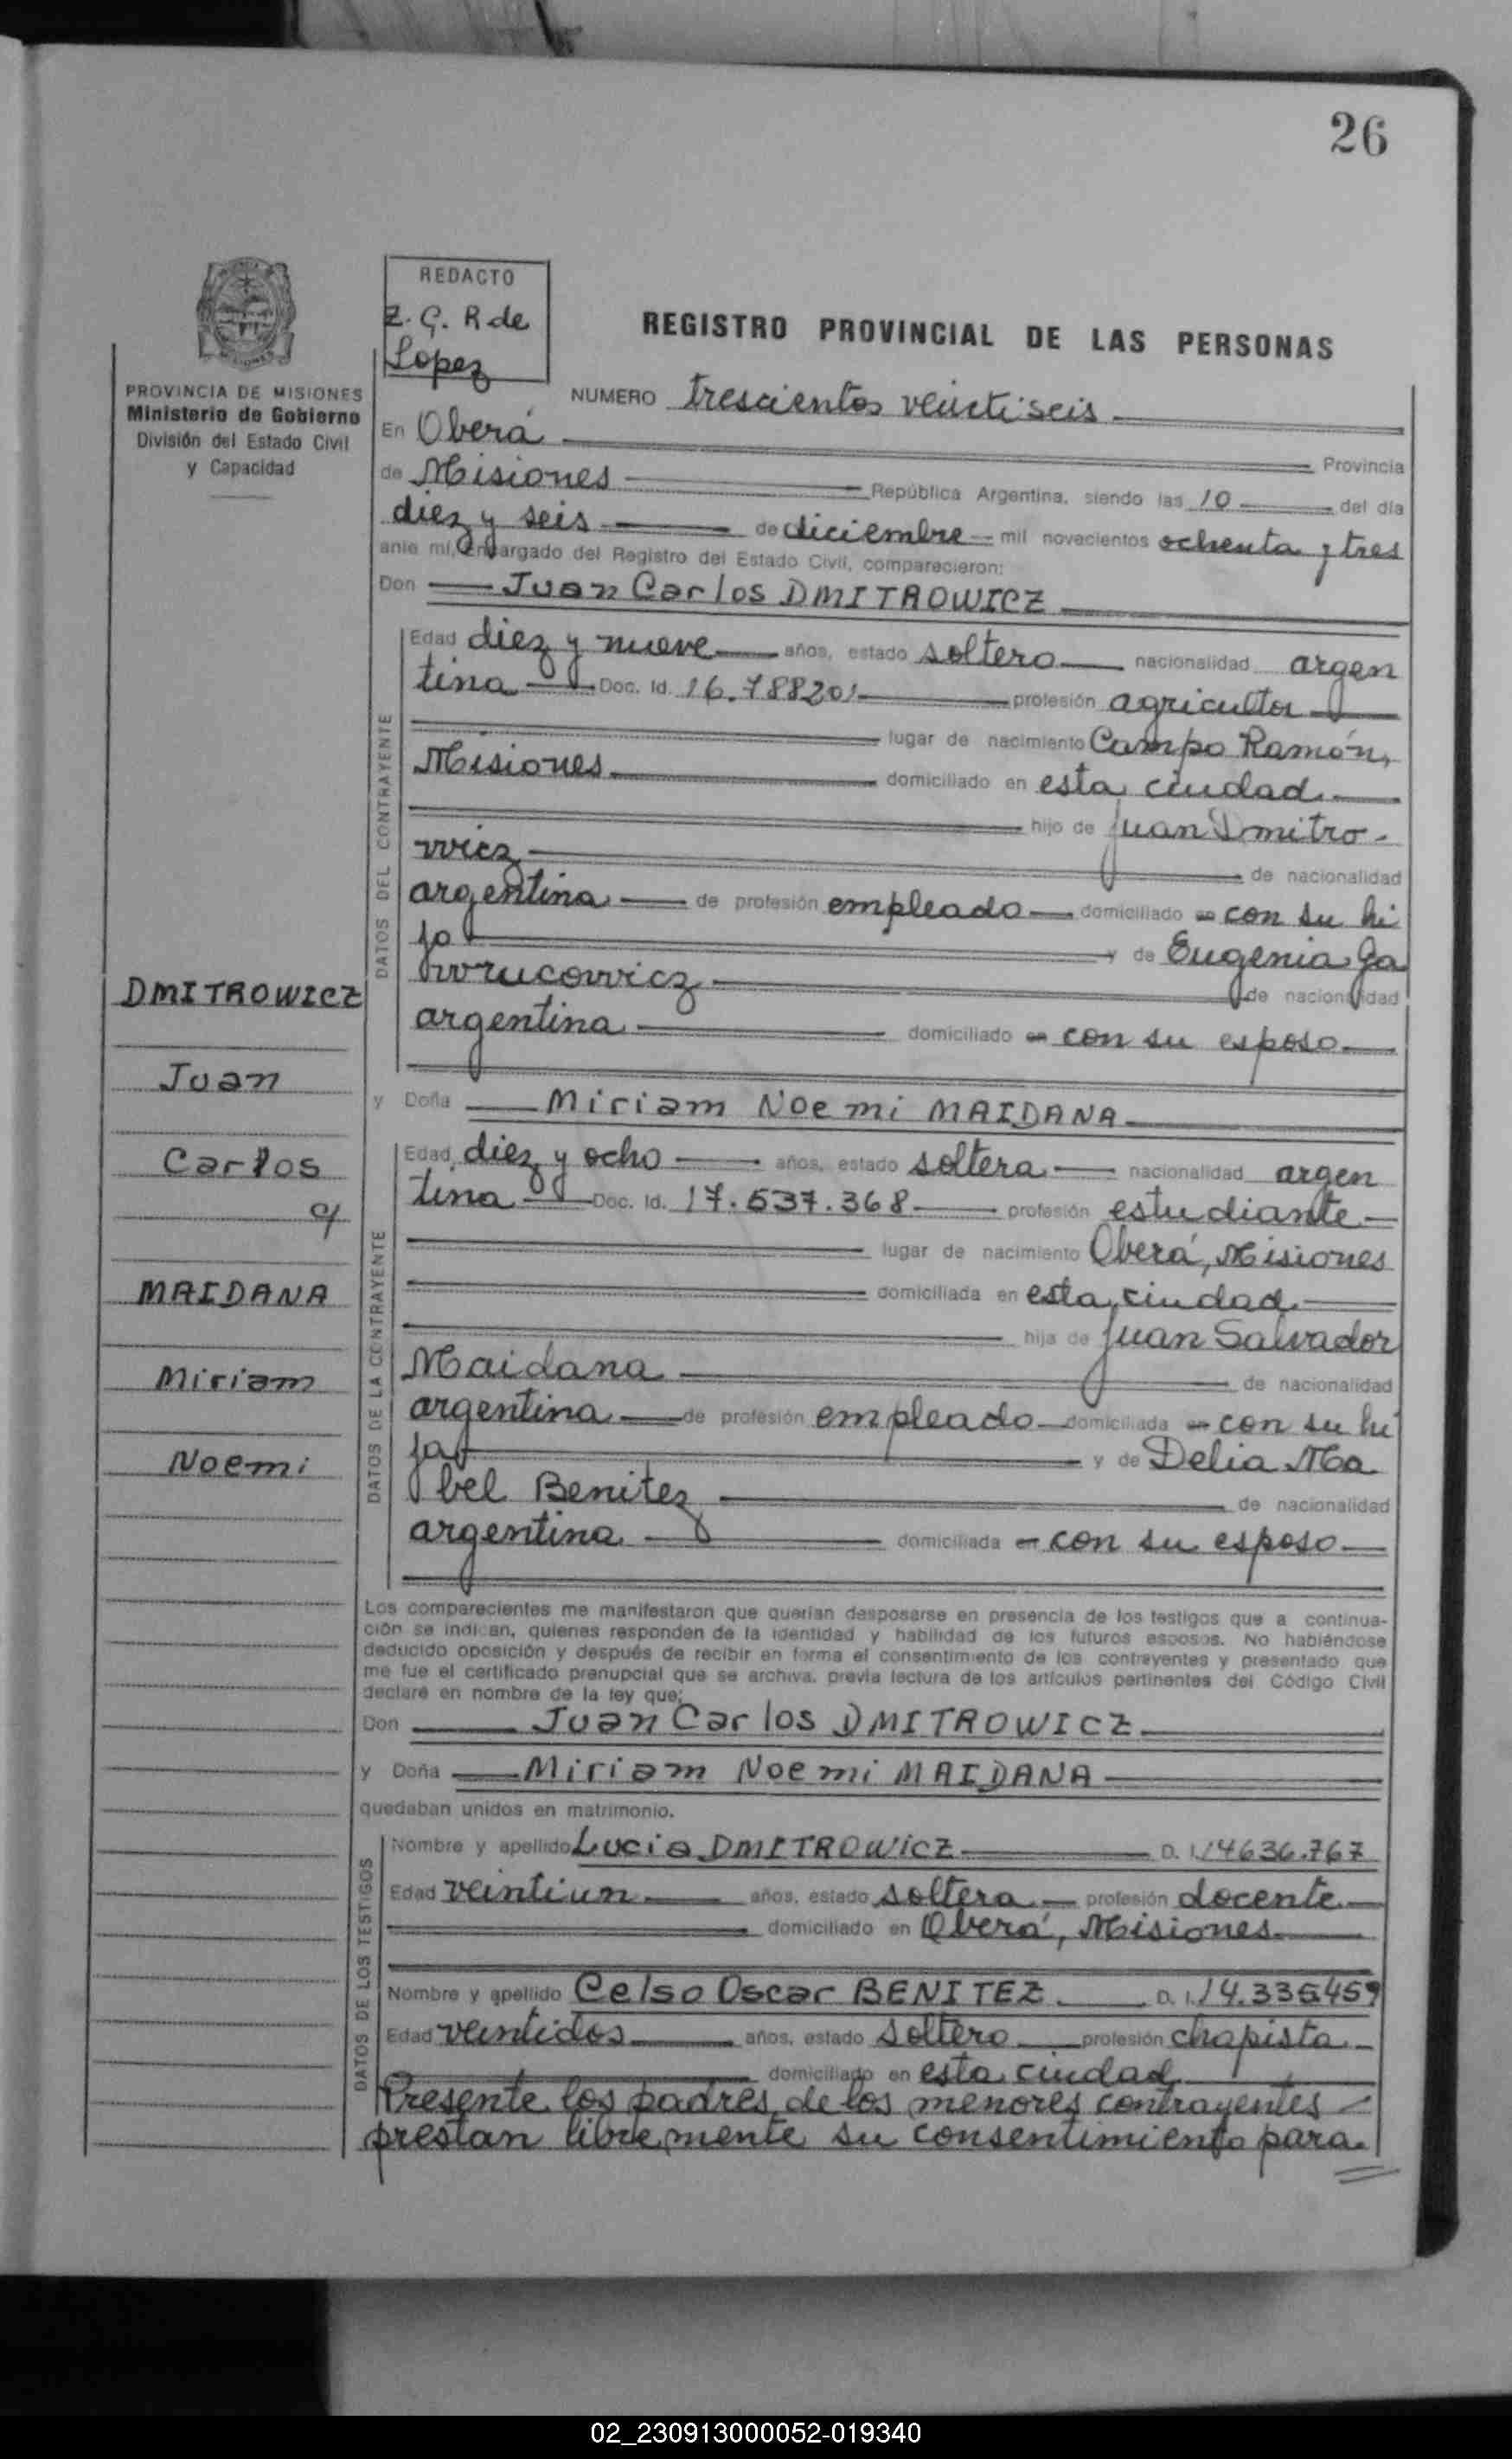 26
REDACTO
Z. G. R de
Lopez
REGISTRO PROVINCIAL DE LAS PERSONAS
PROVINCIA DE MISIONES
Ministerio de Gobierno
División del Estado Civil
y Capacidad
NUMERO trescientos veintiseis
En Oberá Provincia
de Misiones República Argentina, siendo las 10 del día
diez y seis de diciembre mil novecientos ochenta y tres
ante mí, Encargado del Registro del Estado Civil, comparecieron:
Don Juan Carlos DMITROWICZ
DATOS DEL CONTRAYENTE
Edad diez y nueve años, estado soltero nacionalidad argen
tina Doc. Id. 16.788201 profesión agricultor
lugar de nacimiento Campo Ramón,
Misiones domiciliado en esta ciudad
hijo de Juan Dmitro-
wicz de nacionalidad
argentina de profesión empleado domiciliado en con su hi
jo y de Eugenia Ga
wrucowicz de nacionalidad
argentina domiciliado en con su esposo
y Doña Miriam Noemi MAIDANA
DATOS DE LA CONTRAYENTE
Edad diez y ocho años, estado soltera nacionalidad argen
tina Doc. Id. 17.537.368 profesión estudiante
lugar de nacimiento Oberá, Misiones
domiciliada en esta ciudad
hija de Juan Salvador
Maidana de nacionalidad
argentina de profesión empleado domiciliada en con su hi
ja y de Delia Ma
bel Benitez de nacionalidad
argentina domiciliada en con su esposo
DMITROWICZ
Juan
Carlos
c/
MAIDANA
Miriam
Noemi
Los comparecientes me manifestaron que querían desposarse en presencia de los testigos que a continua-
ción se indican, quienes responden de la identidad y habilidad de los futuros esposos. No habiéndose
deducido oposición y después de recibir en forma el consentimiento de los contrayentes y presentado que
me fue el certificado prenupcial que se archiva, previa lectura de los artículos pertinentes del Código Civil
declaré en nombre de la ley que:
Don Juan Carlos DMITROWICZ
y Doña Miriam Noemi MAIDANA
quedaban unidos en matrimonio.
DATOS DE LOS TESTIGOS
Nombre y apellido Lucia DMITROWICZ D. I. 14636.767
Edad veintiun años, estado soltera profesión docente
domiciliado en Oberá, Misiones
Nombre y apellido Celso Oscar BENITEZ D. I. 14.335459
Edad veintidos años, estado soltero profesión chapista
domiciliado en esta ciudad
Presente los padres de los menores contrayentes
prestan libremente su consentimiento para
02_230913000052-019340